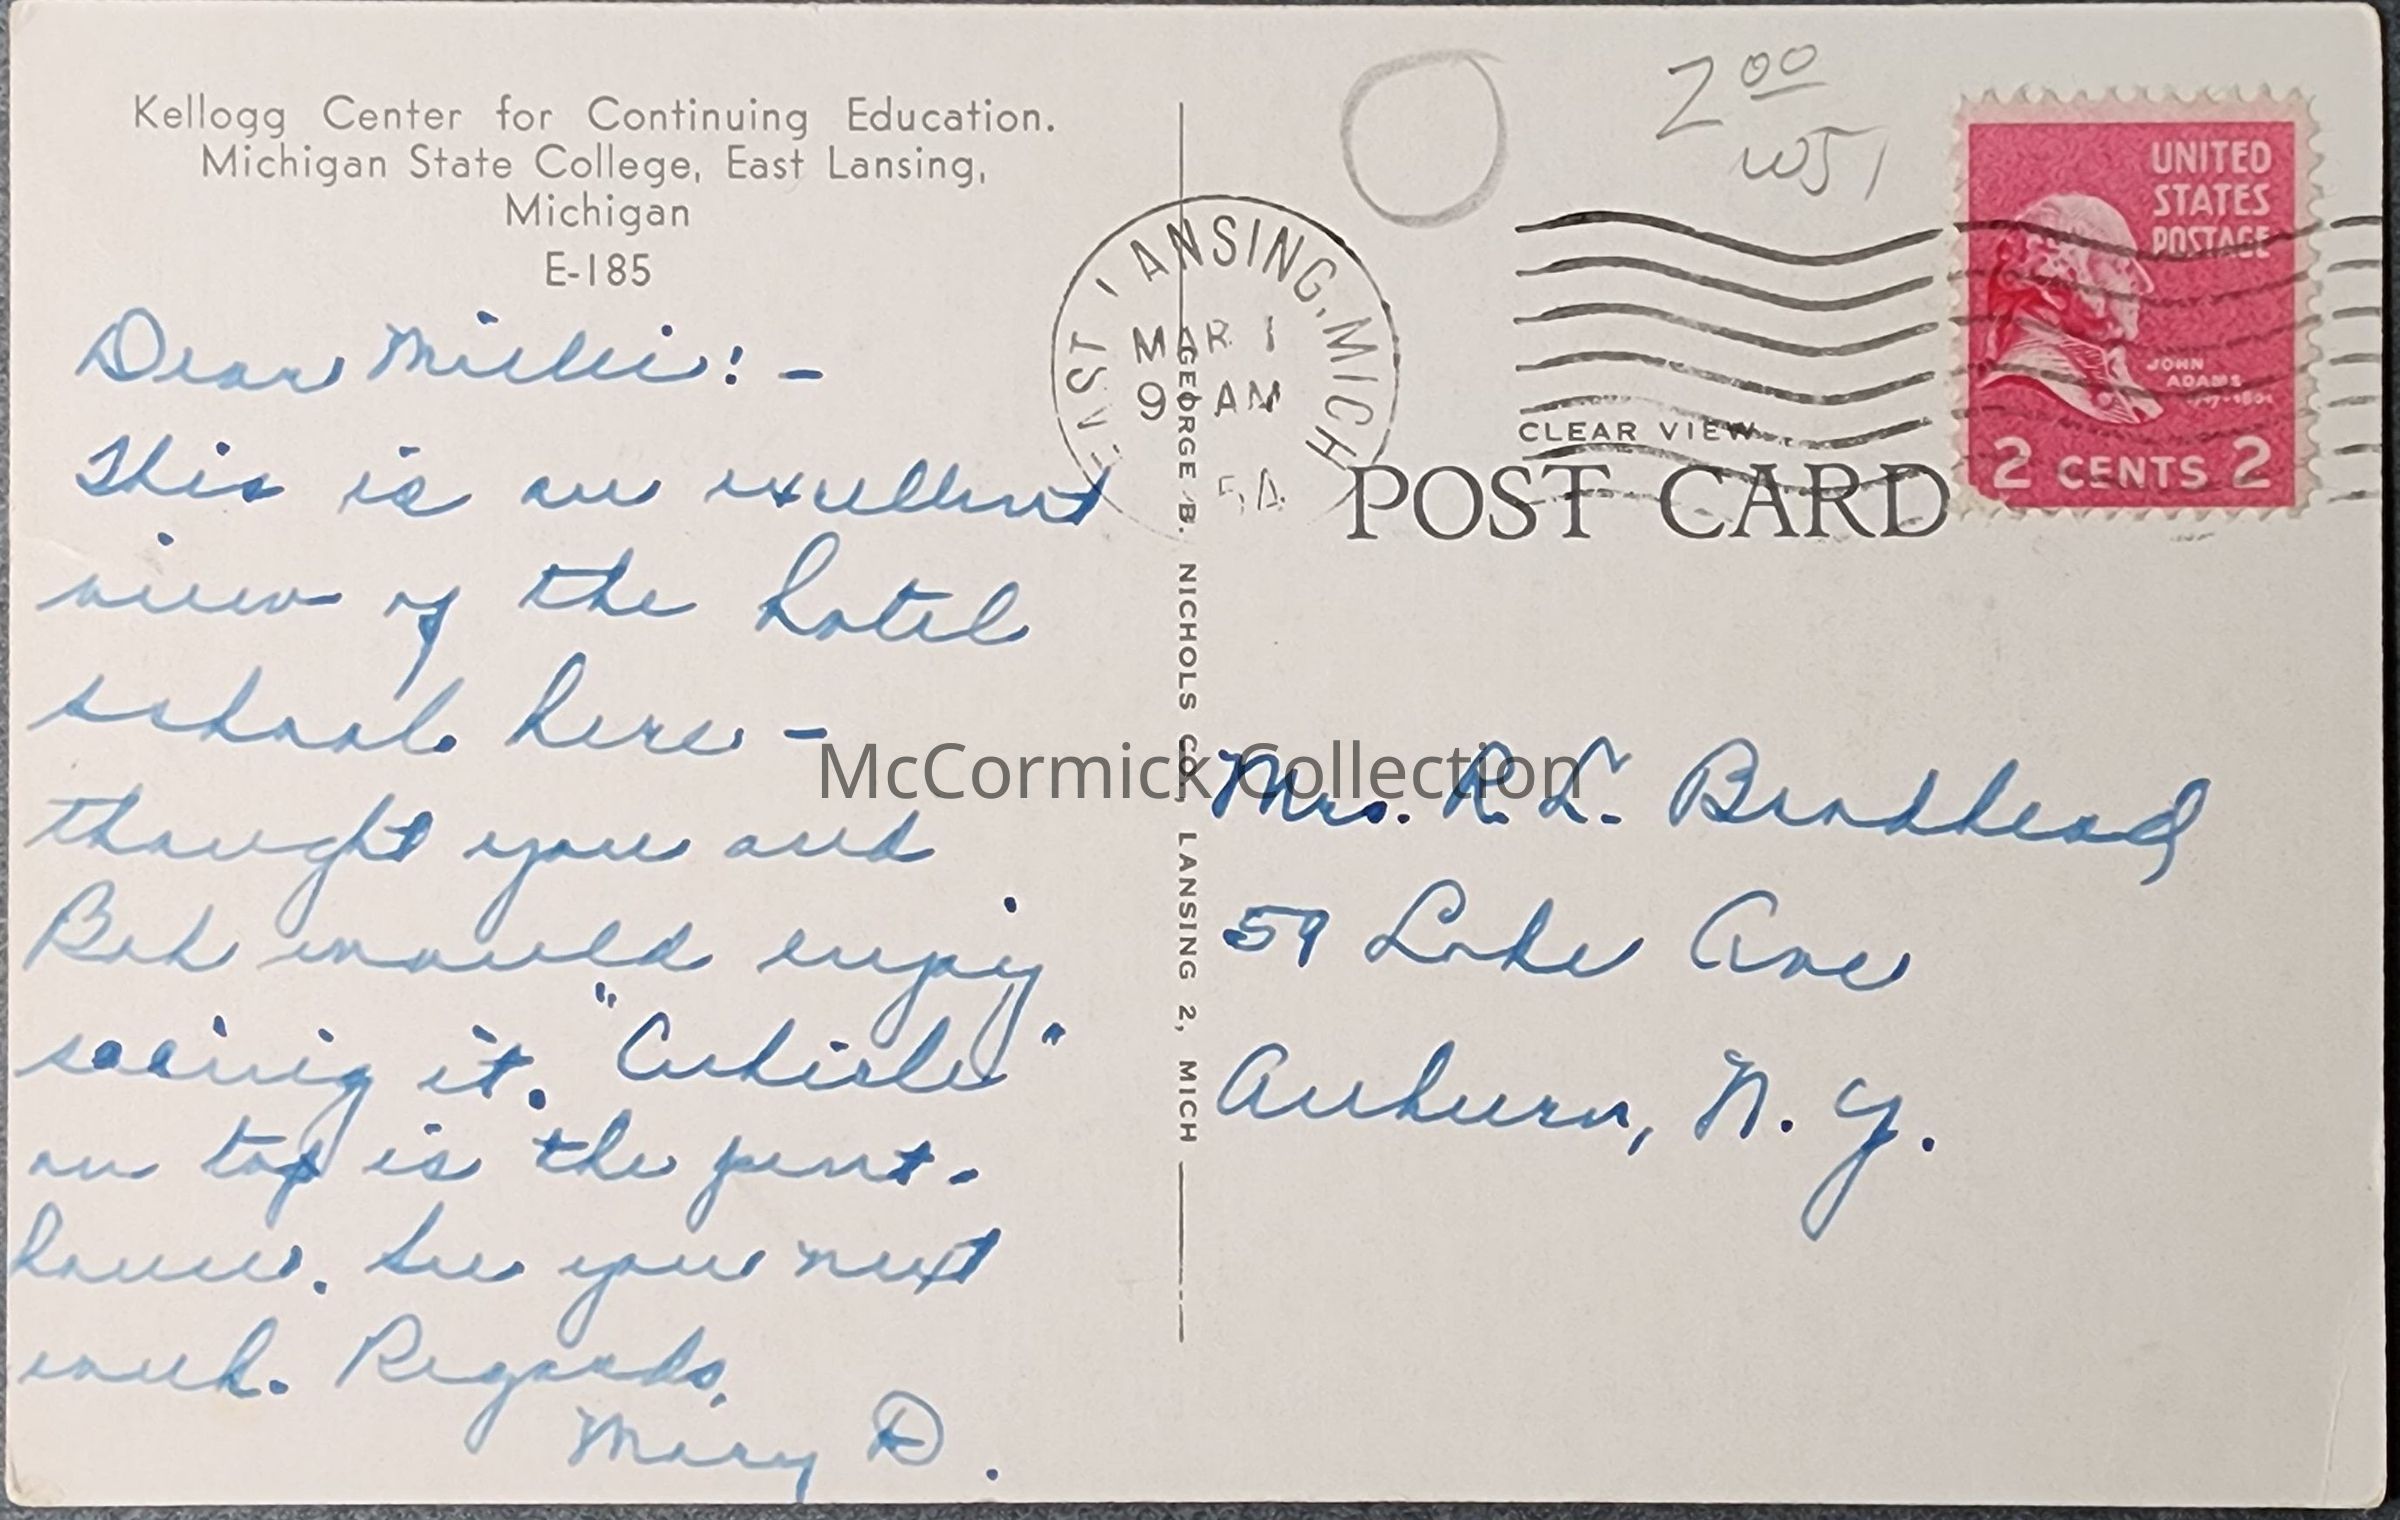 Kellogg Center for Continuing Education.
Michigan State College, East Lansing,
Michigan
E-185
Dear Millie: -
This is an excellent
view of the hotel
school here -
thought you and
Bob would enjoy
seeing it.
on top is the pent-
house. See you next
week. Regards,
Mary D.
GEORGE B. NICHOLS CO., LANSING 2, MICH
EAST LANSING, MICH
MAR 1
9 AM
54
2 00
W51
CLEAR VIEW
POST CARD
UNITED
STATES
POSTAGE
JOHN
ADAMS
2 CENTS 2
Mrs. R. L. Brodhead
59 Lake Ave
Auburn, N. Y.
McCormick Collection